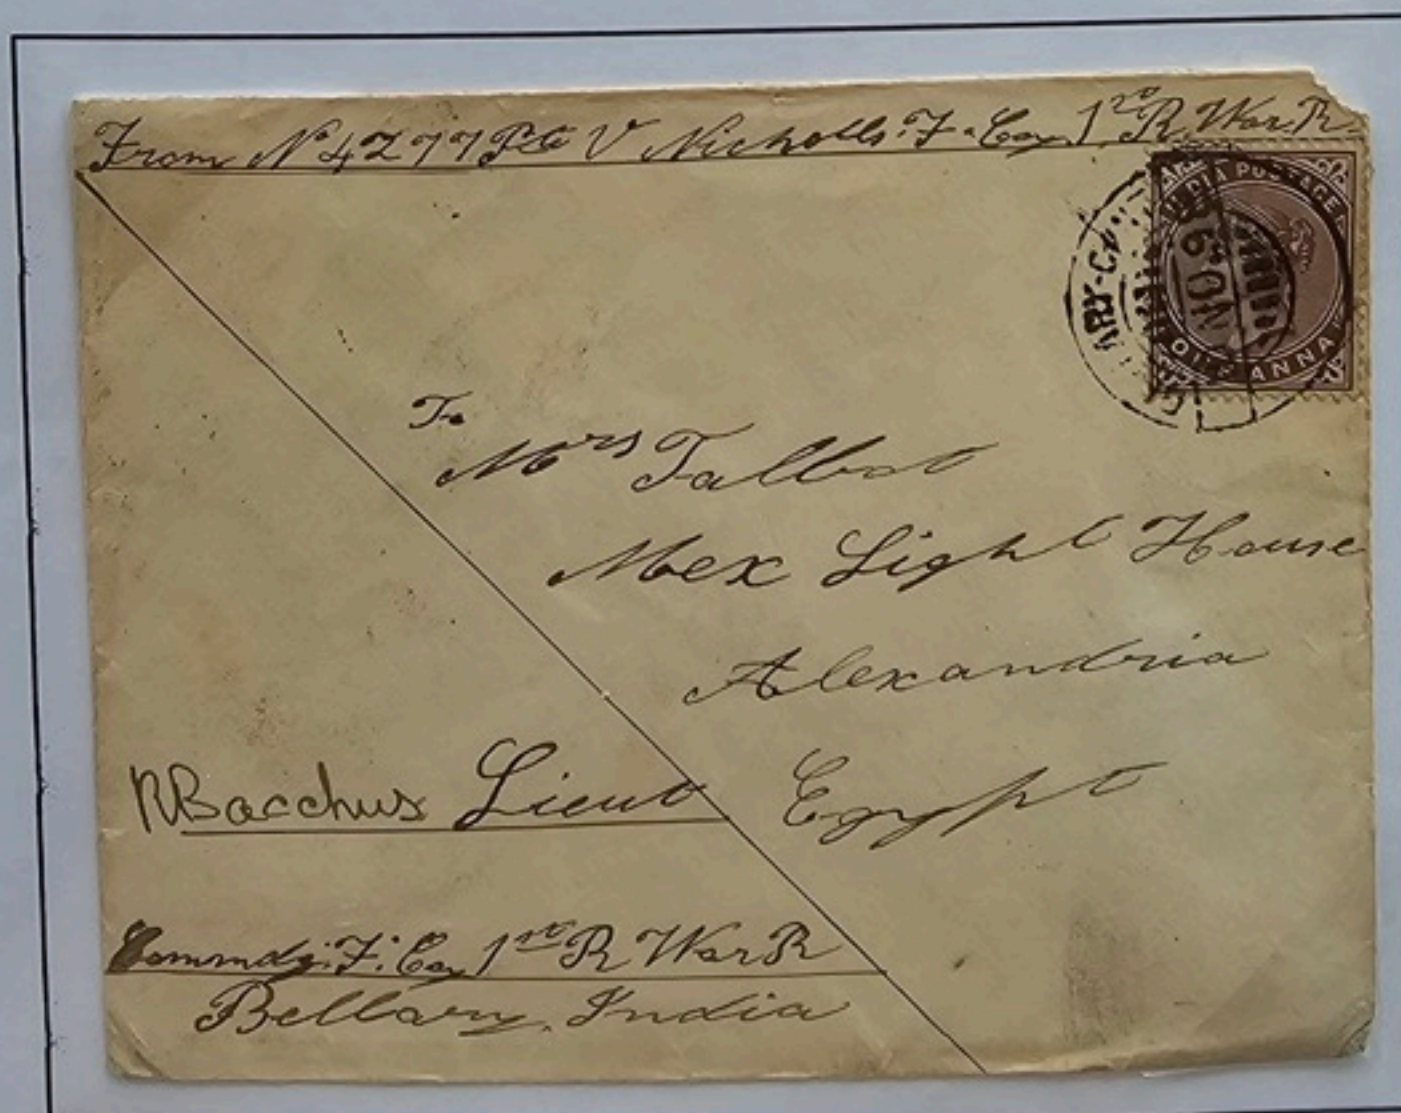 From No 4277 Pte V Nicholls. F. Coy 1st R. War. R.
INDIA POSTAGE
NO. 9
ONE ANNA
To
Mrs Talbot
Mex Light House
Alexandria
Egypt
RBacchus Lieut
Commdg. F. Coy 1st R War R
Bellary. India